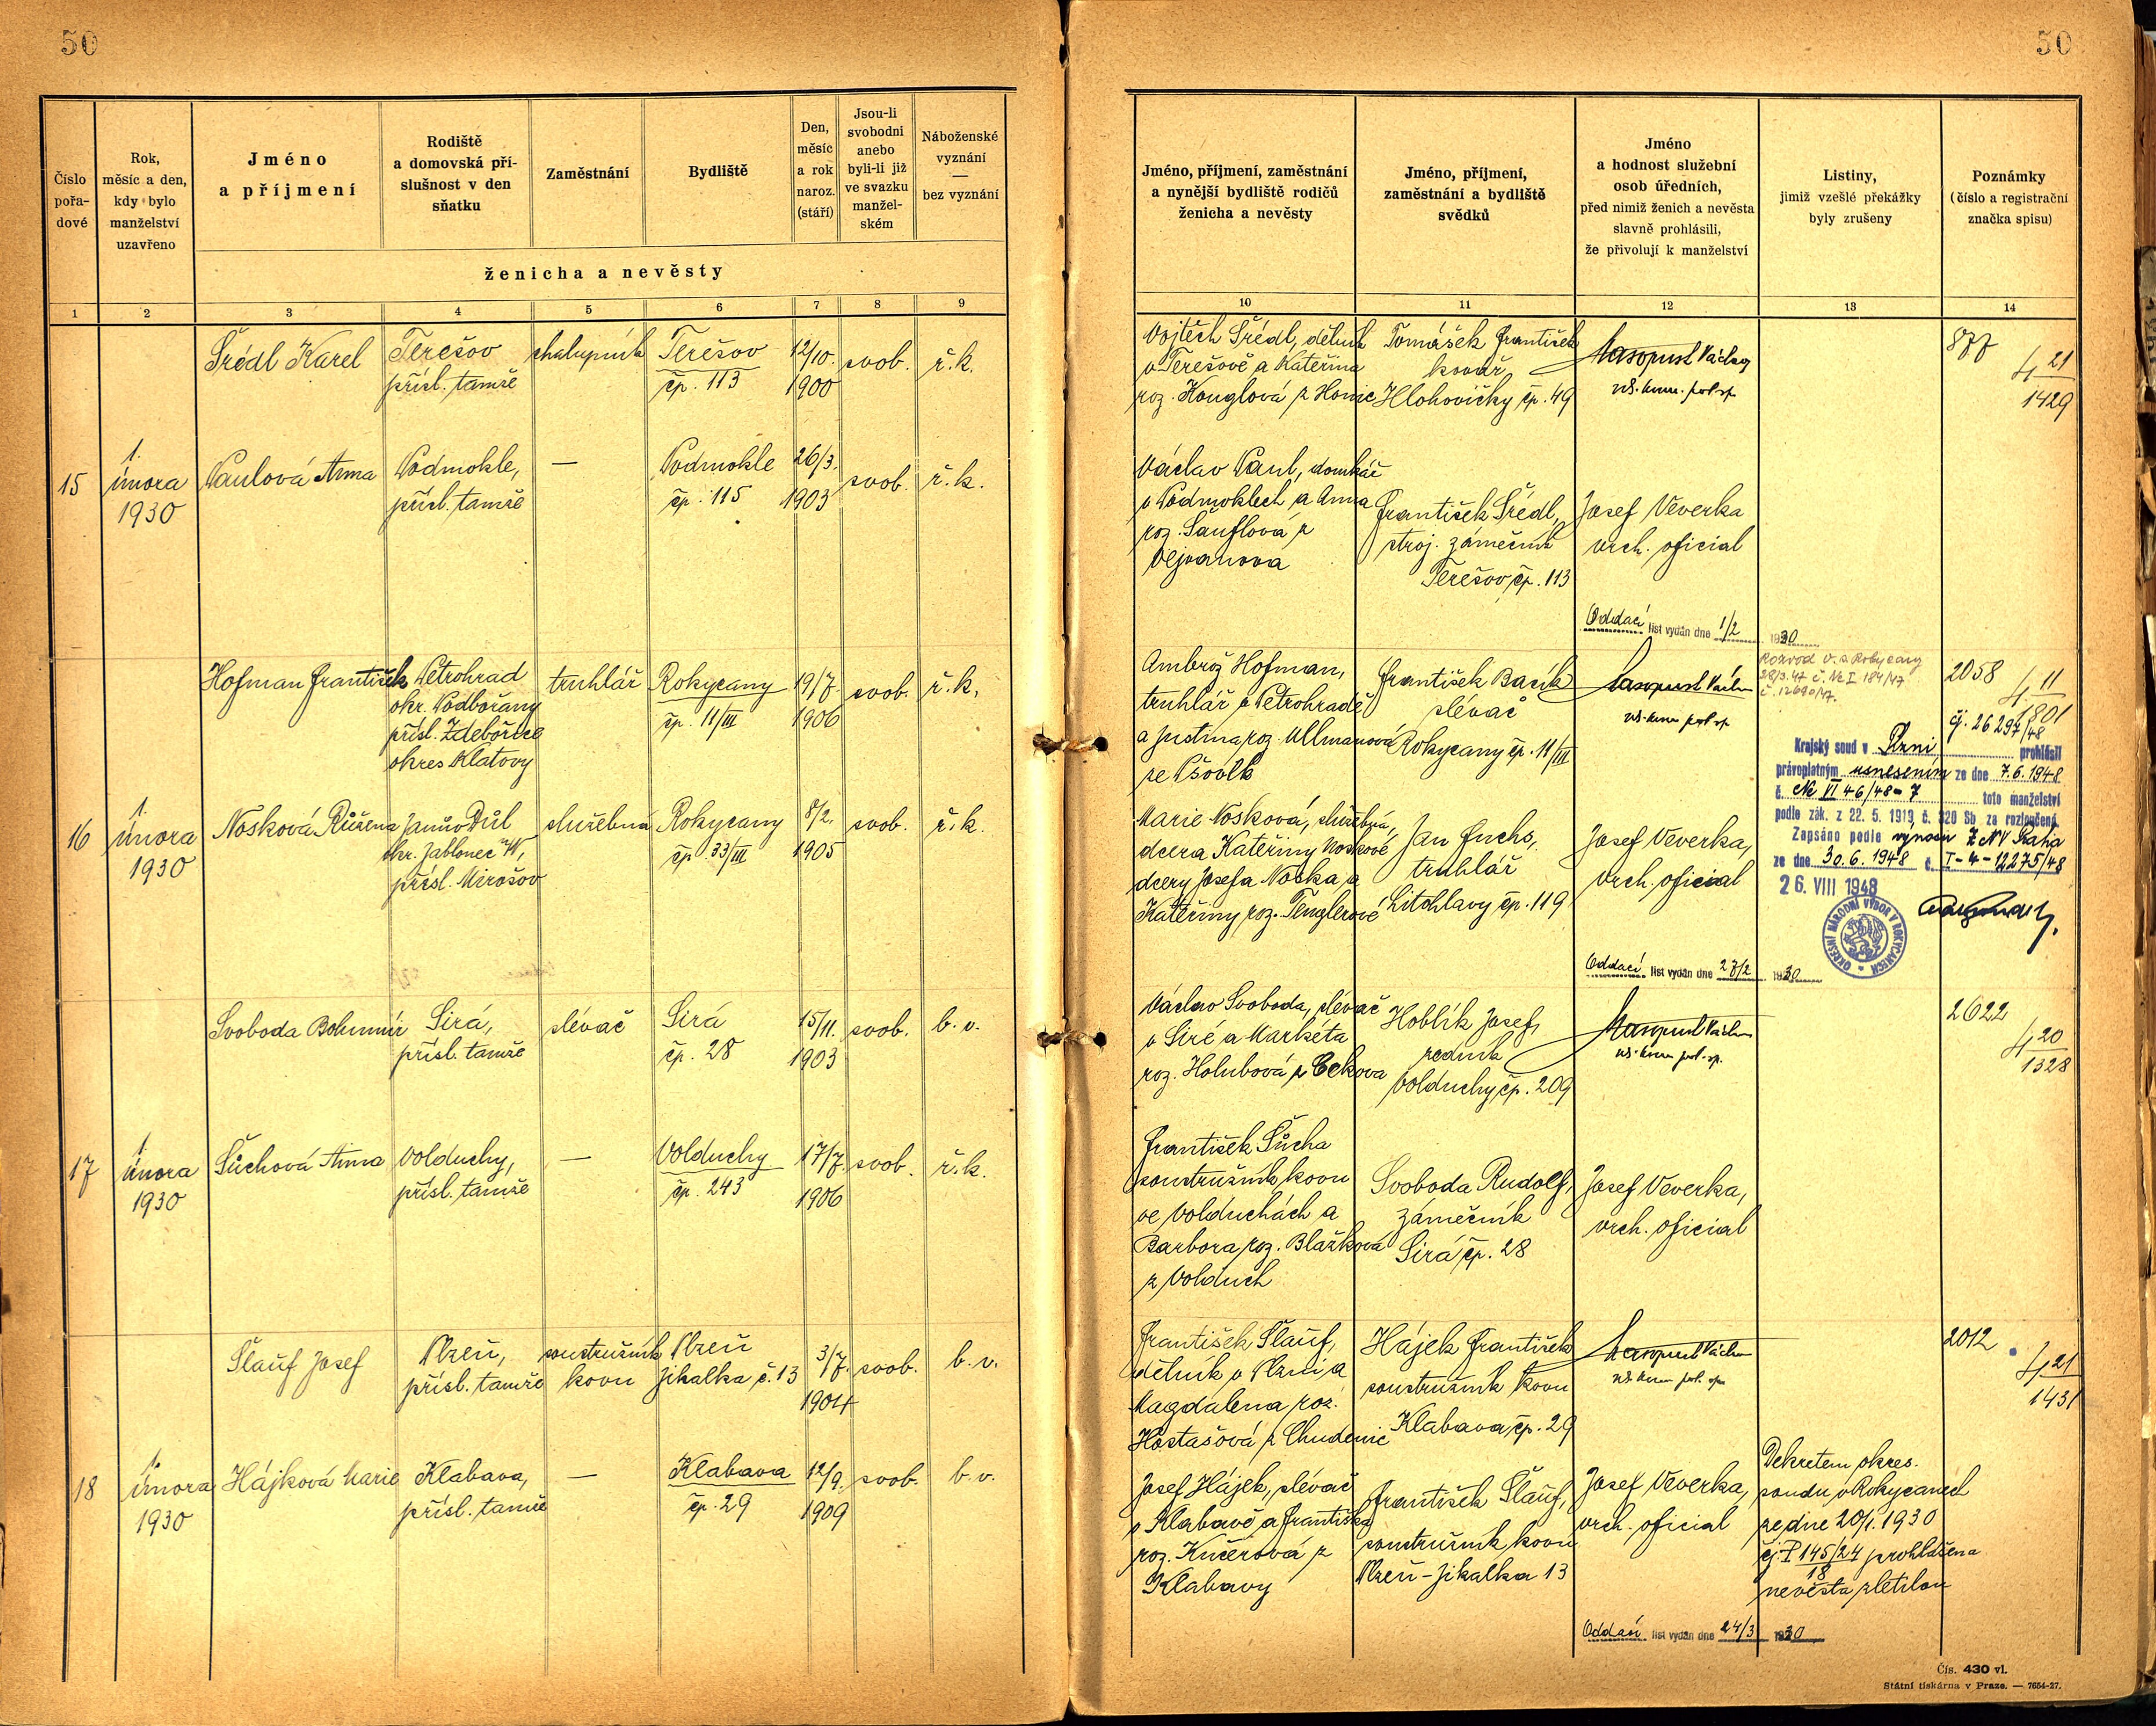 50
50
Číslo pořa-
dové
Rok,
měsíc a den,
kdy bylo
manželství
uzavřeno
Jméno
a příjmení
Rodiště
a domovská pří-
slušnost v den
sňatku
Zaměstnání
Bydliště
Den,
měsíc
a rok
naroz.
(stáří)
Jsou-li
svobodni
anebo
byli-li již
ve svazku
manžel-
ském
Náboženské
vyznání
—
bez vyznání
ženicha a nevěsty
Jméno, příjmení, zaměstnání
a nynější bydliště rodičů
ženicha a nevěsty
Jméno, příjmení,
zaměstnání a bydliště
svědků
Jméno
a hodnost služební
osob úředních,
před nimiž ženich a nevěsta
slavně prohlásili,
že přivolují k manželství
Listiny,
jimiž vzešlé překážky
byly zrušeny
Poznámky
(číslo a registrační
značka spisu)
1 2 3 4 5 6 7 8 9
10 11 12 13 14
15
1.
února
1930
Šrédl Karel
Terešov
přísl. tamže
chalupník
Terešov
čp. 113
12/10.
1900
svob.
ř. k.
Paulová Anna
Podmokle,
přísl. tamže
—
Podmokle
čp. 115
26/3.
1903
svob.
ř. k.
Vojtěch Šrédl, dělník
v Terešově a Kateřina
roz. Kouglová z
Tomášek František
kovář
Hlohovičky čp. 49
Masopust Václav
877
4 21
1429
Václav Paul, domkář
v Podmoklech a Anna
roz. Šauflová z
Vejvanova
František Šrédl,
stroj. zámečník
Terešov, čp. 113
Josef Veverka
vrch. oficial
Oddací list vydán dne 1/2 1930
16
1.
února
1930
Hofman František
Petrohrad
okr. Podbořany
přísl. Zdebořice
okres Klatovy
truhlář
Rokycany
čp. 11/III
19/7.
1906
svob.
ř. k.
Nosková Růžena
Janův Důl
okr. Jablonec n/N,
přísl. Mirošov
služebná
Rokycany
čp. 33/III
8/2.
1905
svob.
ř. k.
Ambrož Hofman,
truhlář v Petrohradě
a Justina roz. Ullmanová
ze Pšovlk
František Bacík
slévač
Rokycany čp. 11/III
Masopust Václav
Rozvod o. s. Rokycany
28/3.47 č. Nc I 184/47
č. 12690/47.
2058
4 11
1801
čj. 26297/48
Krajský soud v Plzni prohlásil
právoplatným usnesením ze dne 7.6.1948
č. Nc VI 46/48-7 toto manželství
podle zák. z 22. 5. 1919, č. 320 Sb. za rozloučené.
Zapsáno podle výnosu ZNV Praha
ze dne 30.6.1948 č. I-4-12275/48
26. VIII 1948
OKRESNÍ NÁRODNÍ VÝBOR V ROKYCANECH
Marie Nosková, služebná,
dcera Kateřiny Noskové
dcery Josefa Noska a
Kateřiny roz. Tenglerové
Jan Fuchs,
truhlář
Litohlavy čp. 119
Josef Veverka,
vrch. oficial
Oddací list vydán dne 27/2 1930
17
1.
února
1930
Svoboda Bohumír
Sirá,
přísl. tamže
slévač
Sirá
čp. 28
15/11.
1903
svob.
b. v.
Šůchová Anna
Volduchy,
přísl. tamže
—
Volduchy
čp. 243
17/7.
1906
svob.
ř. k.
Václav Svoboda, slévač
v Siré a Markéta
roz. Holubová z Cekova
Hoblík Josef,
zedník
Volduchy čp. 209
Masopust Václav
2622
4 20
1328
František Šůcha
soustružník kovu
ve Volduchách a
Barbora roz. Blažková
z Volduch
Svoboda Rudolf,
zámečník
Sirá čp. 28
Josef Veverka,
vrch. oficial
18
1.
února
1930
Šlauf Josef
Plzeň,
přísl. tamže
soustružník
kovu
Plzeň
Jikalka č. 13
3/7.
1904
svob.
b. v.
Hájková Marie
Klabava,
přísl. tamže
—
Klabava
čp. 29
12/9.
1909
svob.
b. v.
František Šlauf,
dělník v Plzni a
Magdalena roz.
Hostašová z Chudenic
Hájek František
soustružník kovu
Klabava čp. 29
Masopust Václav
2012
4 21
1431
Josef Hájek, slévač
v Klabavě a Františka
roz. Kučerová z
Klabavy
František Šlauf,
soustružník kovu
Plzeň - Jikalka 13
Josef Veverka,
vrch. oficial
Dekretem okres.
soudu v Rokycanech
ze dne 20/1. 1930
čj. P 145/24 prohlášena
18
nevěsta zletilou
Oddací list vydán dne 24/3 1930
Čís. 430 vl.
Státní tiskárna v Praze. — 7654-27.